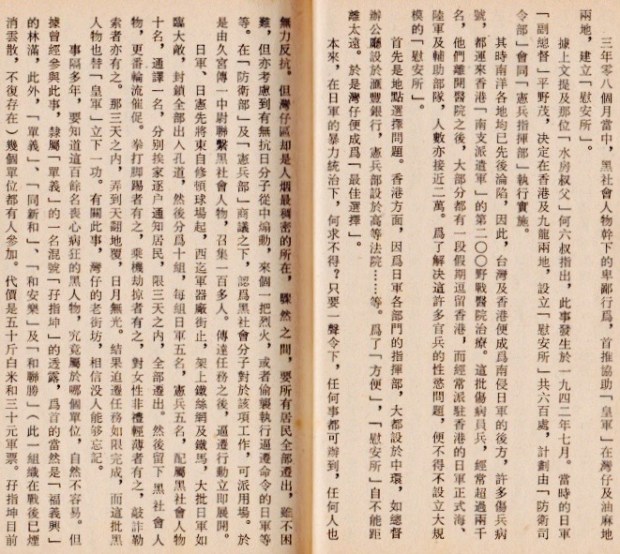 三年零八個月當中，黑社會人物幹下的卑鄙行爲，首推協助「皇軍」在灣仔及油麻地
兩地，建立「慰安所」。
據上文提及那位「水房叔父」何六叔指出，此事發生於一九四二年七月。當時的日軍
「副總督」平野茂，決定在香港及九龍兩地，設立「慰安所」共六百處，計劃由「防衛司
令部」會同「憲兵指揮部」執行實施。
其時南洋各地均已先後淪陷，因此，台灣及香港便成爲南侵日軍的後方，許多傷兵病
號，都運來香港「南支派遣軍」的第二〇〇野戰醫院治療。這批傷病員兵，經常超過兩千
名，他們離開醫院之後，大部分都有一段假期逗留香港，而經常派駐香港的日軍正式海、
陸軍及輔助部隊，人數亦接近二萬。爲了解決這許多官兵的性慾問題，便不得不設立大規
模的「慰安所」。
首先是地點選擇問題。香港方面，因爲日軍各部門的指揮部，大都設於中環，如總督
辦公廳設於滙豐銀行，憲兵部設於高等法院……等。爲了「方便」，「慰安所」自不能距
離太遠。於是灣仔便成爲「最佳選擇」。
本來，在日軍的暴力統治下，何求不得？只要一聲令下，任何事都可辦到，任何人也
無力反抗。但灣仔區却是人烟最稠密的所在，驟然之間，要所有居民全部遷出，雖不困
難，但亦考慮到有無抗日分子從中煽動，來個一把烈火，或者偷襲執行逼遷命令的日軍等
等。在「防衛部」及「憲兵部」商議之下，認爲黑社會分子對於該項工作，可派用場。於
是由久宮傳一中尉聯繫黑社會人物，召集一百多人。傳達任務之後，逼遷行動立即展開。
日軍、日憲先將東自修頓球場起，西迄軍器廠街止，架上鐵絲網及鐵馬，大批日軍如
臨大敵，封鎖全部出入孔道，然後分爲十組，每組日軍五名，憲兵五名，配屬黑社會人物
十名，通譯一名，分別挨家逐户通知居民，限三天之內，全部遷出。然後留下黑社會人
物，更番輪流催促。拳打脚踢者有之，乘機劫掠者有之，對女性非禮輕薄者有之，敲詐勒
索者亦有之。那三天之內，弄到天翻地覆，日月無光。結果迫遷任務如限完成，而這批黑
人物也替「皇軍」立下一功。有關此事，灣仔的老街坊，相信沒人能够忘記。
事隔多年，要知道這百餘名喪心病狂的黑人物，究竟屬於哪個單位，自然不容易。但
據曾經參與此事，隸屬「單義」的一名混號「孖指坤」的透露，爲首的當然是「福義興」
的林滿，此外，「單義」、「同新和」、「和安樂」及「和聯勝」（此一組織在戰後已煙
消雲散，不復存在）幾個單位都有人參加。代價是五十斤白米和三十元軍票。孖指坤目前